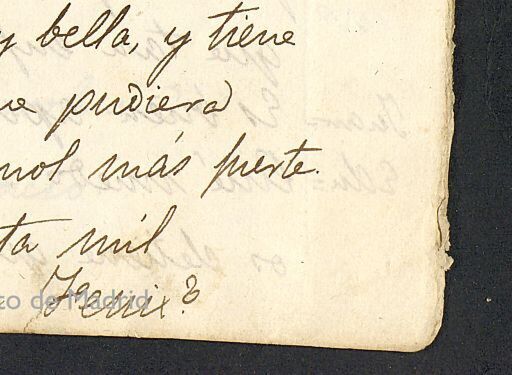 y bella, y tiene
ue pudiera
nol más fuerte.
ta mil
Fenix?
zo de Madrid